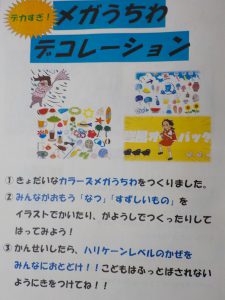 デカすぎ！
メガうちわ
デコレーション
① きょだいなカラーズメガうちわをつくりました。
② みんながおもう「なつ」「すずしいもの」を
イラストでかいたり、がようしでつくったりして
はってみよう！
③ かんせいしたら、ハリケーンレベルのかぜを
みんなにおとどけ！！こどもはふっとばされない
ようにきをつけてね！！